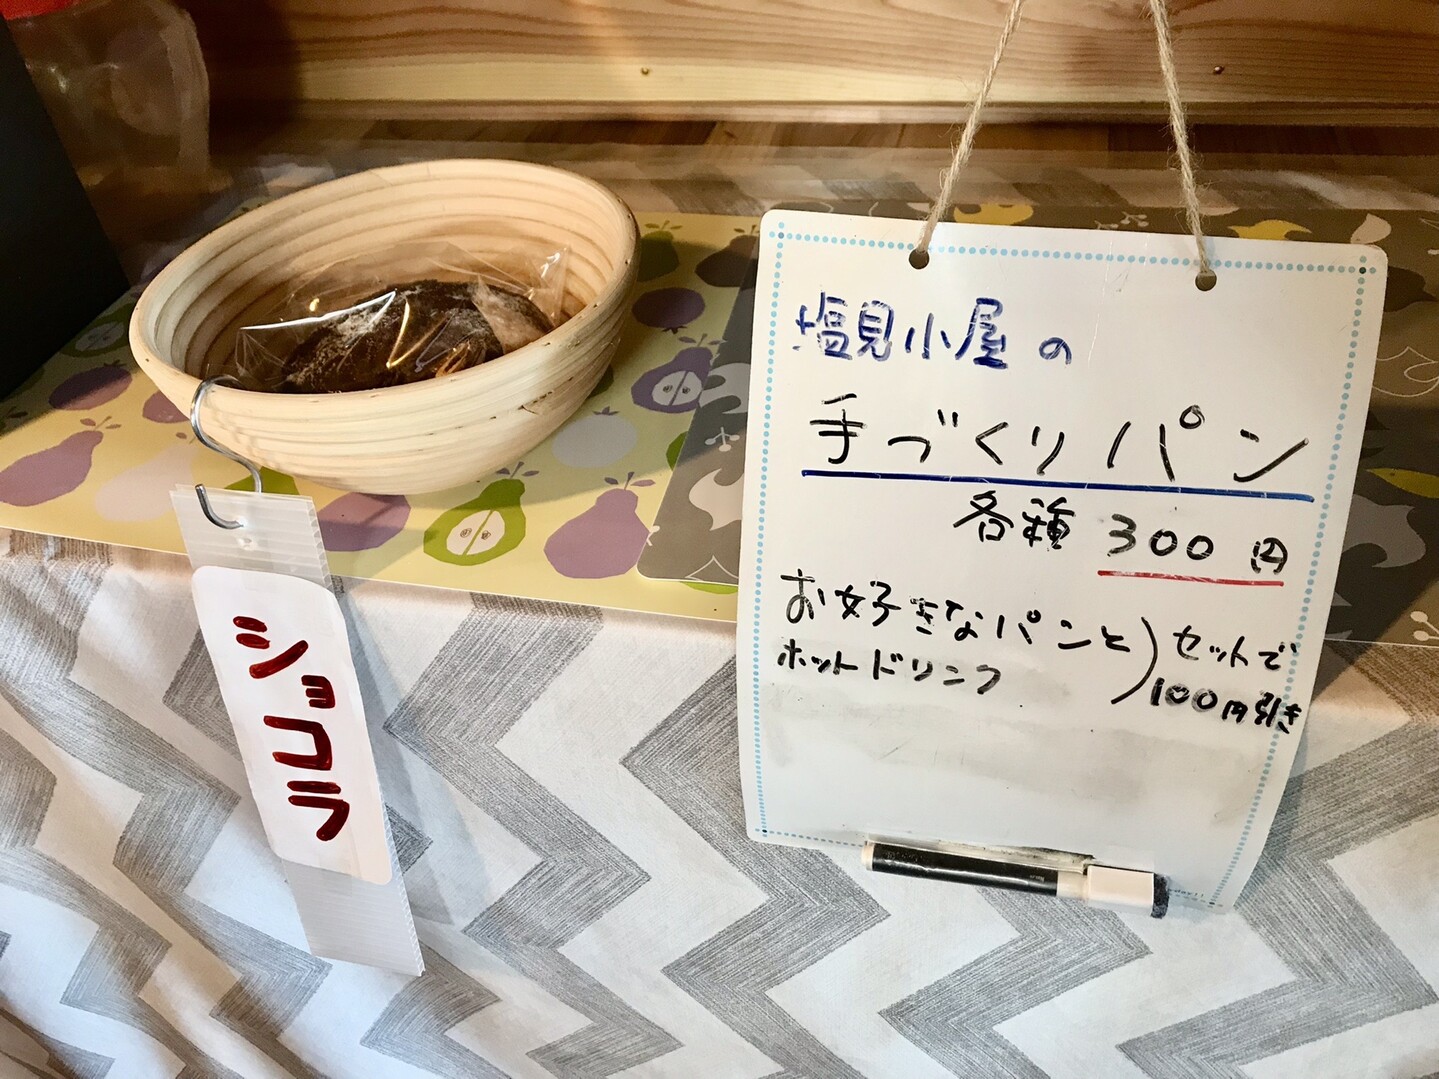 塩見小屋の
手づくりパン
各種 300円
お好きなパンと
ホットドリンク
セットで
100円引き
ショコラ